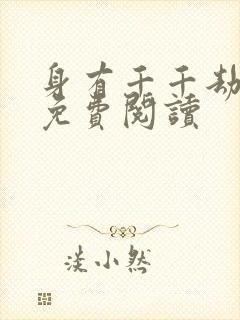 身有千千劫
免費閱讀
淡小然